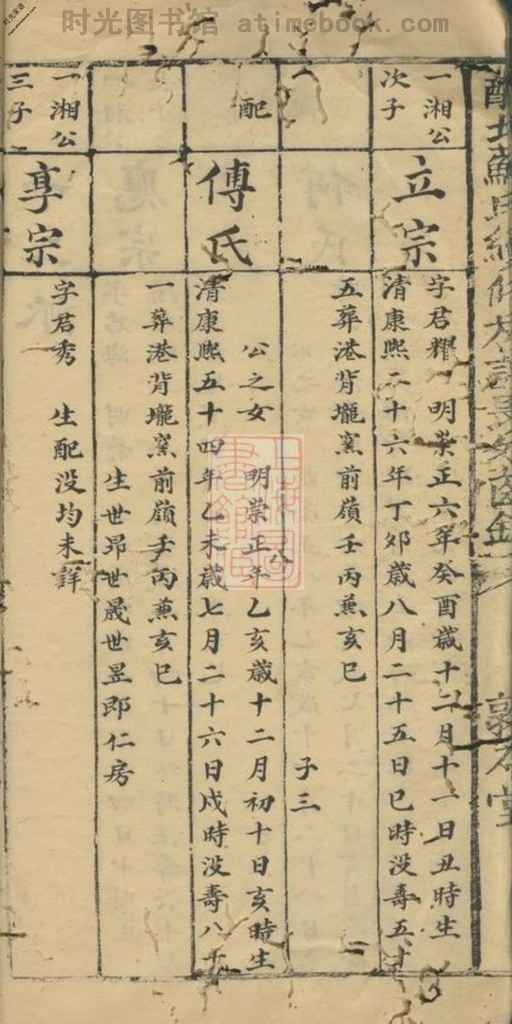 时光图书馆 atimebook.com
一湘公
次子
立宗
字君耀 明崇正六年癸酉歲十二月十一日丑時生
清康熙二十六年丁夘歲八月二十五日巳時没壽五十
五葬港背壠窯前嶺壬丙兼亥巳
子三
配
傅氏
公之女 明崇正年乙亥歲十二月初十日亥時生
清康熙五十四年乙未歲七月二十六日戌時没壽八十
一葬港背壠窯前嶺壬丙兼亥巳
生世昂世晟世昱郎仁房
一湘公
三子
享宗
字君秀 生配没均未詳